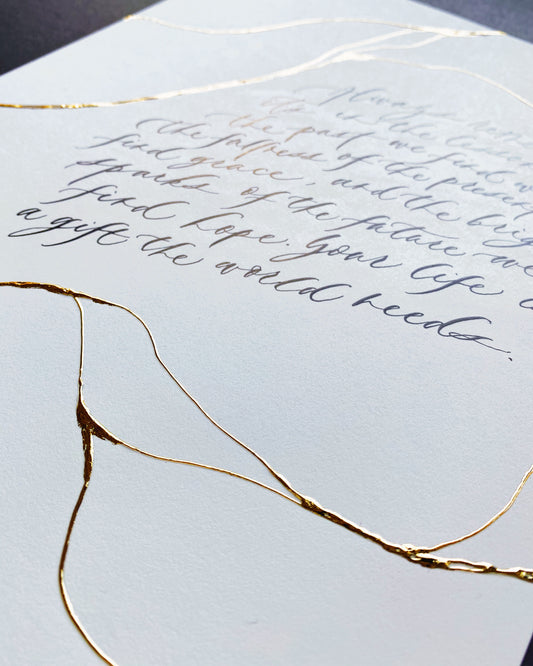 Always
is the
the past we find
the fullness of the
find grace, and the
sparks of the future we
find hope. Your life
a gift the world needs.